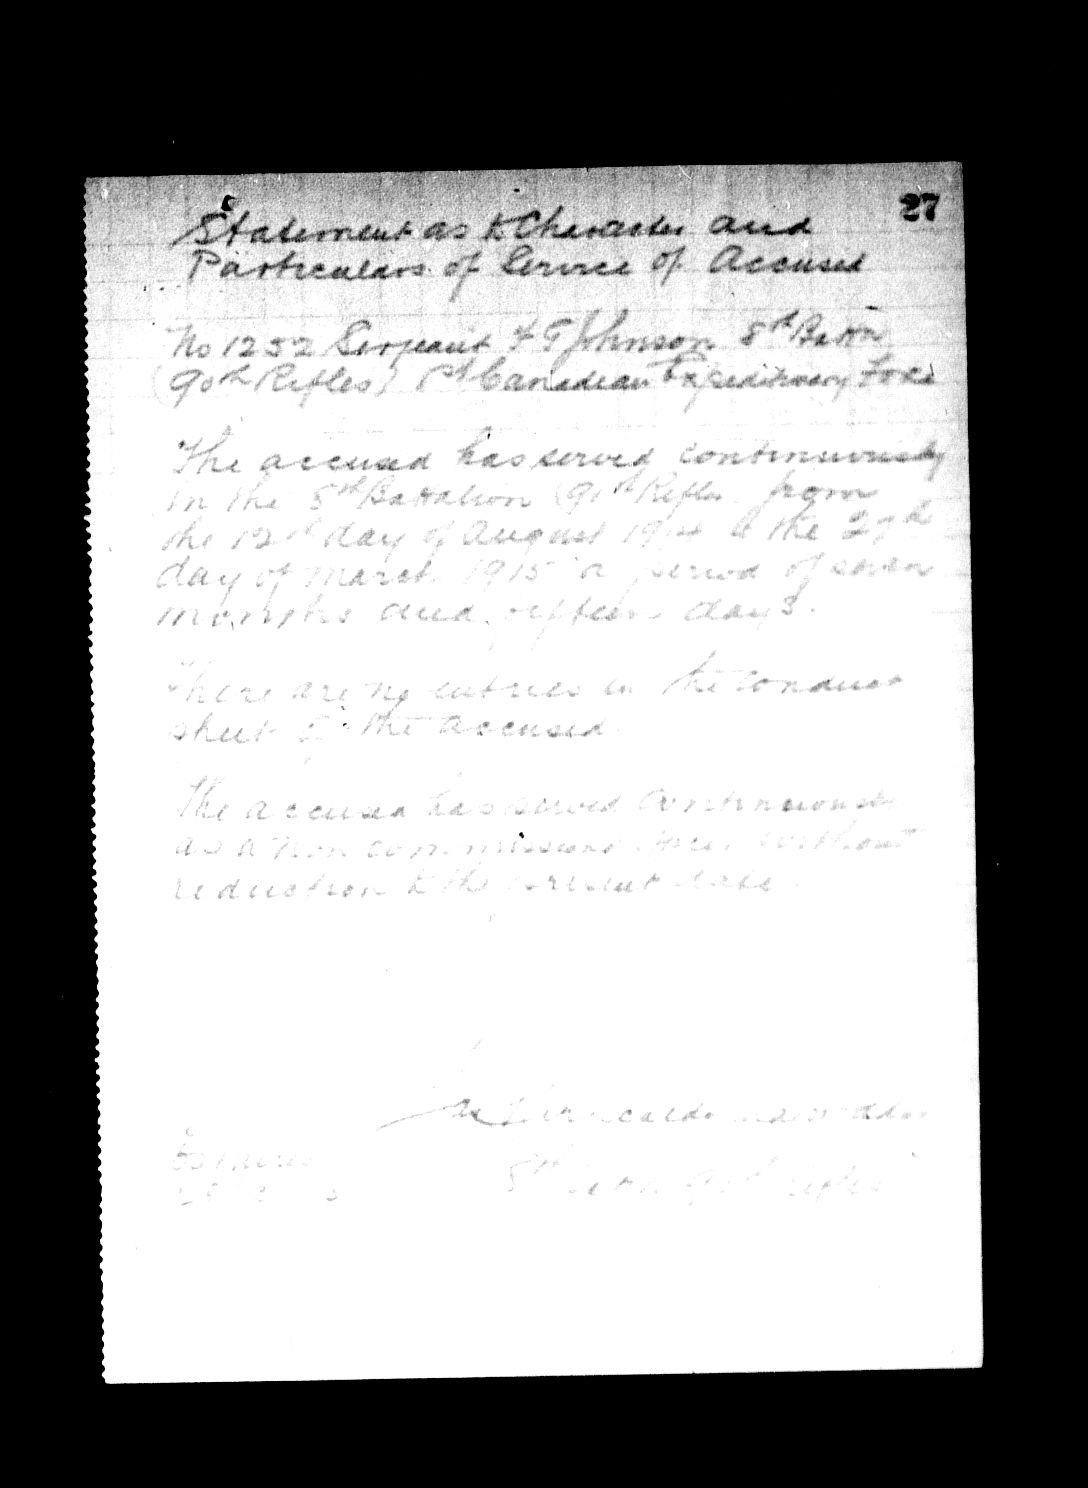 27
Statement as to Character and
Particulars of Service of Accused
No 1252 Sergeant F T Johnson 8th Battn
(90th Rifles) 1st Canadian Expeditionary Force
The accused has served continuously
in the 8th Battalion (90th Rifles from
the 12th day of August 1914 to the 27th
day of March 1915 a period of seven
months and fifteen days.
There are no entries in the conduct
sheet of the accused
The accused has served continuously
as a non commissioned officer without
reduction to the present date.
8th Battn 90th Rifles